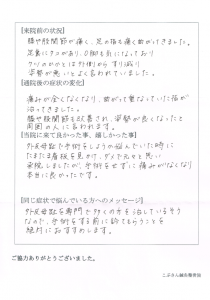 [来院前の状況]
腰や股関節が痛く、足の指も痛く曲がってきました。
足裏にタコがあり、O脚も気になっており
クツのかかとは外側からすり減り
姿勢が悪いとよく言われていました。
[通院後の症状の変化]
痛みが全くなくなり、曲がって重なっていた指が
治ってきました。
腰や股関節も改善され、姿勢が良くなったと
周囲の人に言われます。
[当院に来て良かった事、嬉しかった事]
外反母趾で手術をしようか悩んでいた時に
たまたま看板を見かけ、ダメでもともと思い
来院しましたが、手術をせずに痛みがなくなり
本当に良かったです。
[同じ症状で悩んでいる方へのメッセージ]
外反母趾を専門で多くの方を治しているそう
なので、手術をする前に診てもらうことを
絶対におすすめします。
ご協力ありがとうございました。
こぶさん鍼灸整骨院